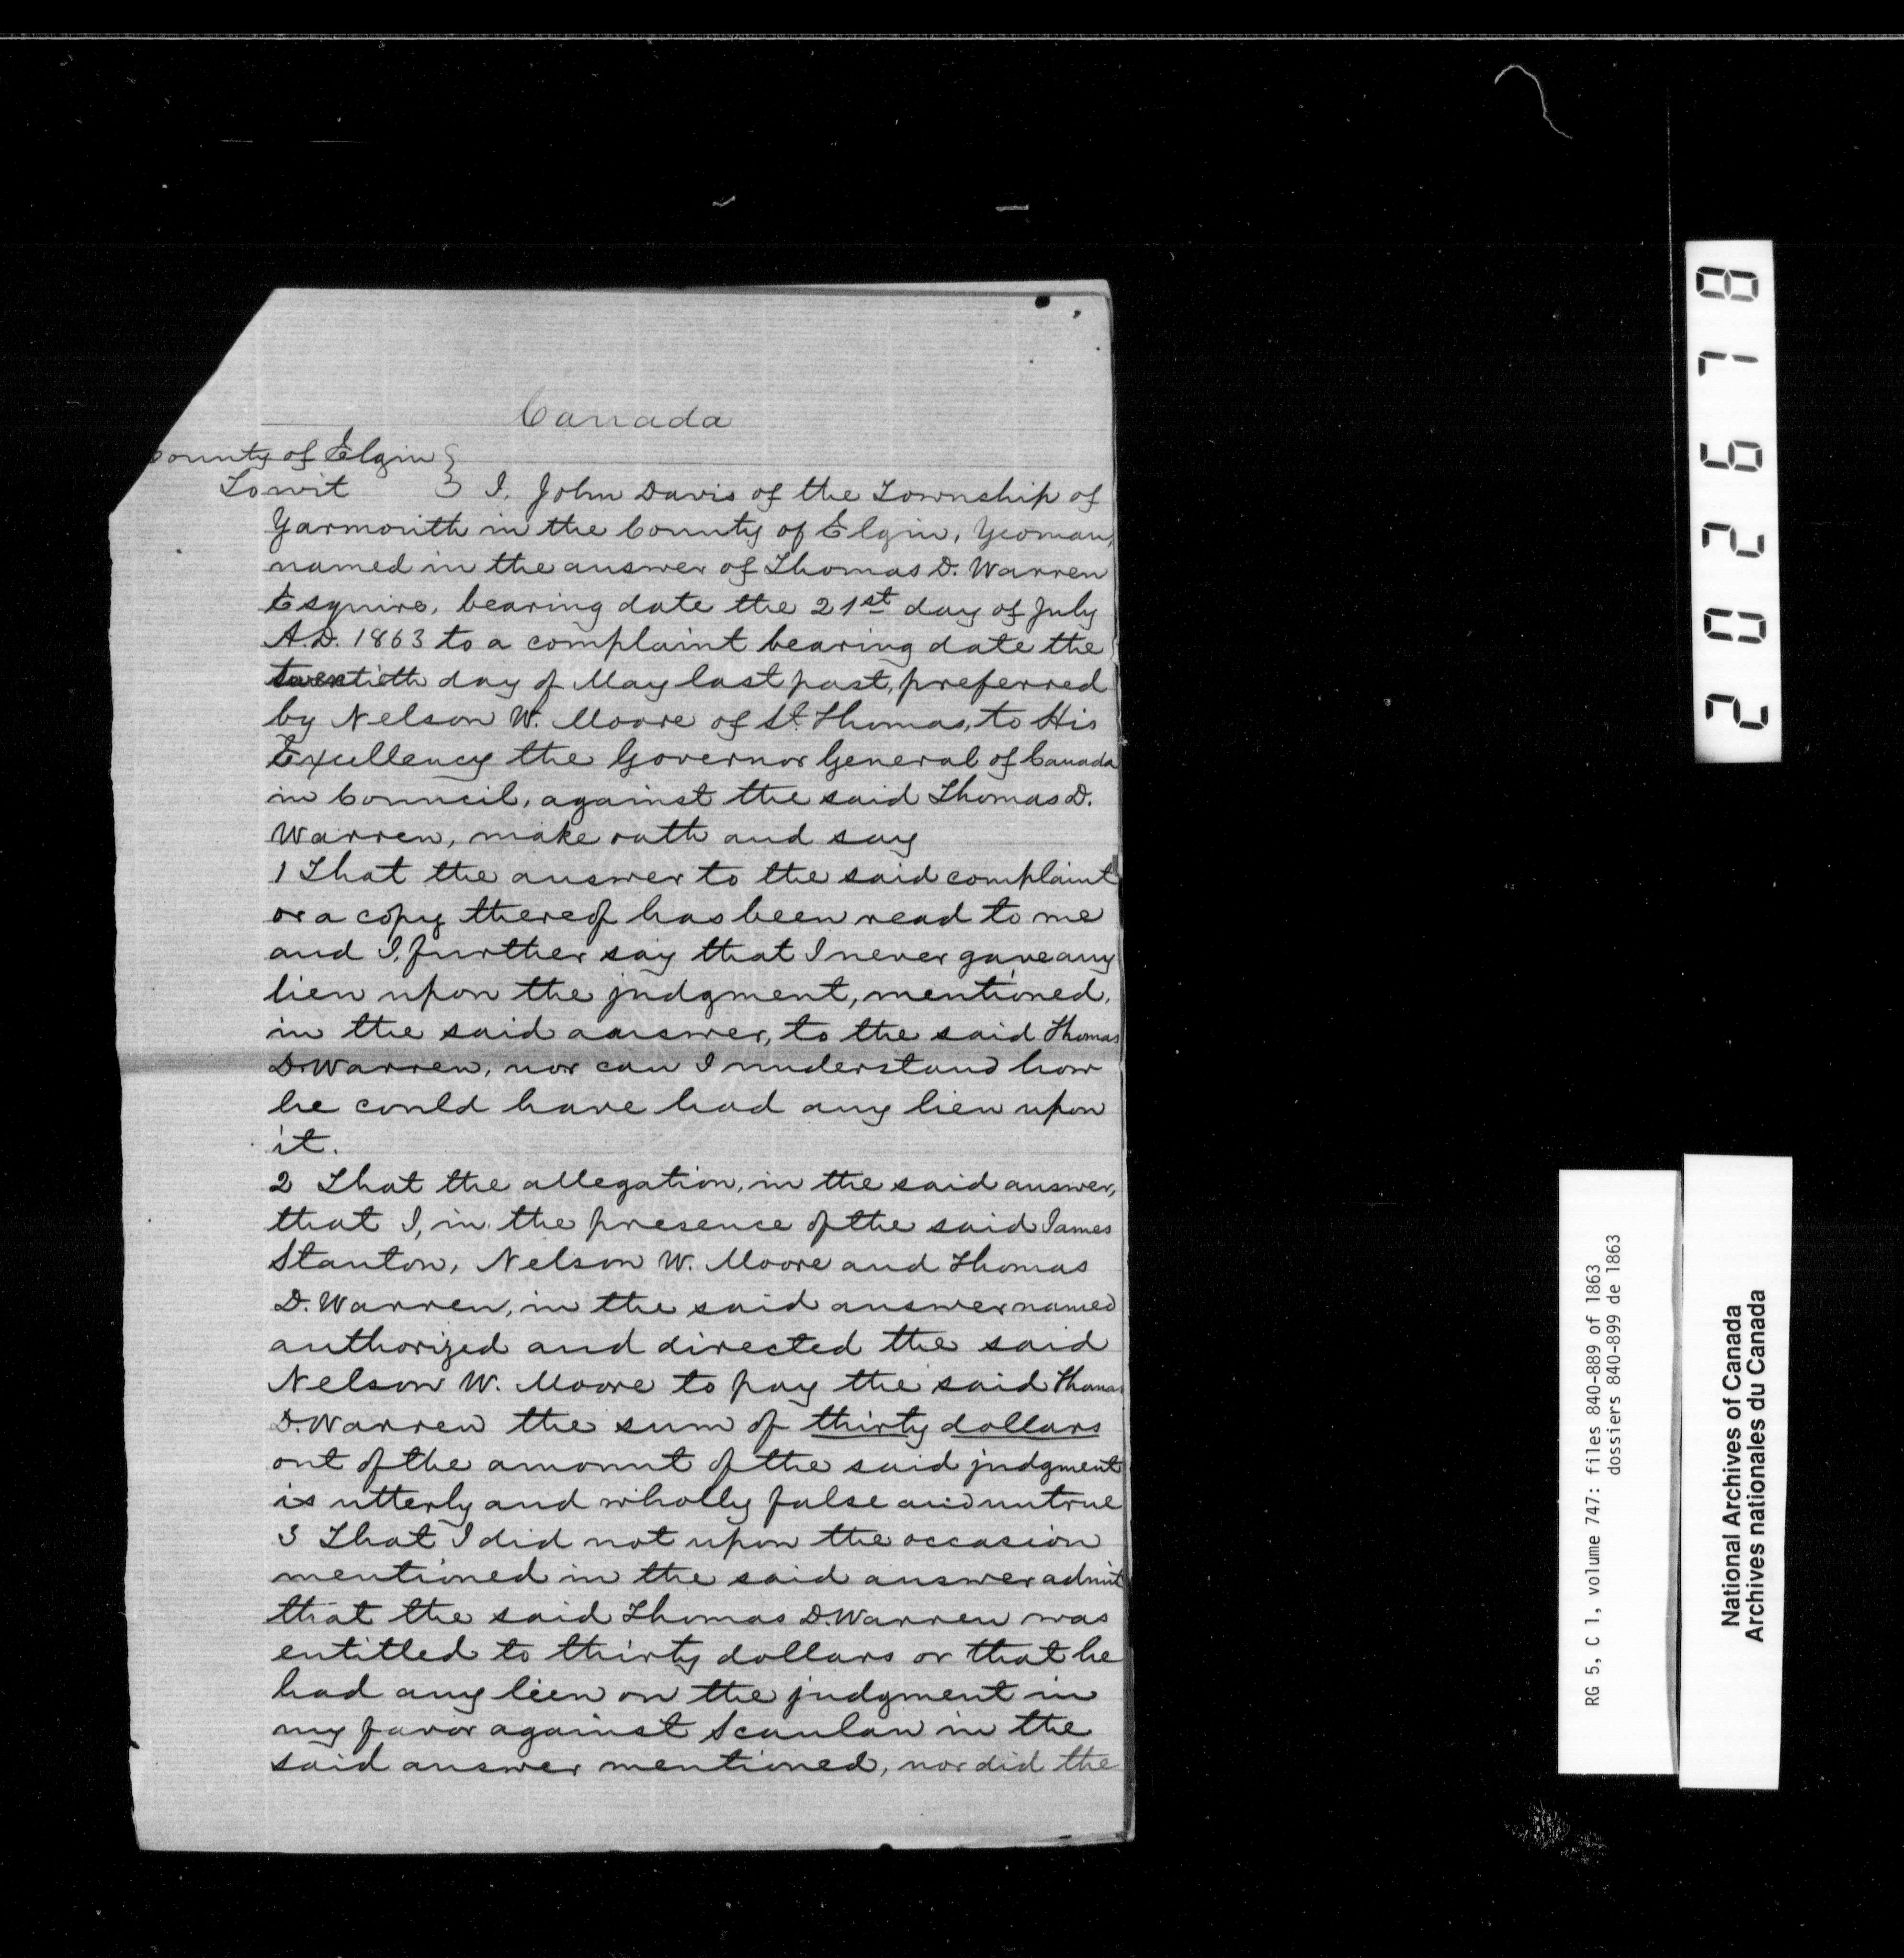 Canada
County of Elgin }
To wit } I, John Davis of the Township of
Yarmouth in the County of Elgin, Yeoman,
named in the answer of Thomas D. Warren
Esquire, bearing date the 21st day of July
A.D. 1863 to a complaint bearing date the
twentieth day of May last past, preferred
by Nelson W. Moore of St. Thomas, to His
Excellency the Governor General of Canada
in Council, against the said Thomas D.
Warren, make oath and say
1 That the answer to the said complaint
or a copy thereof has been read to me
and I, further say that I never gave any
lien upon the judgment, mentioned,
in the said aanswer, to the said Thomas
D. Warren, nor can I understand how
he could have had any lien upon
it.
2 That the allegation, in the said answer,
that I, in the presence of the said James
Stanton, Nelson W. Moore and Thomas
D. Warren, in the said answer named
authorized and directed the said
Nelson W. Moore to pay the said Thomas
D. Warren the sum of thirty dollars
out of the amount of the said judgment
is utterly and wholly false and untrue
3 That I did not upon the occasion
mentioned in the said answer admit
that the said Thomas D. Warren was
entitled to thirty dollars or that he
had any lien on the judgment in
my favor against Scanlan in the
said answer mentioned, nor did the
202678
RG 5, C 1, volume 747: files 840-889 of 1863
dossiers 840-899 de 1863
National Archives of Canada
Archives nationales du Canada